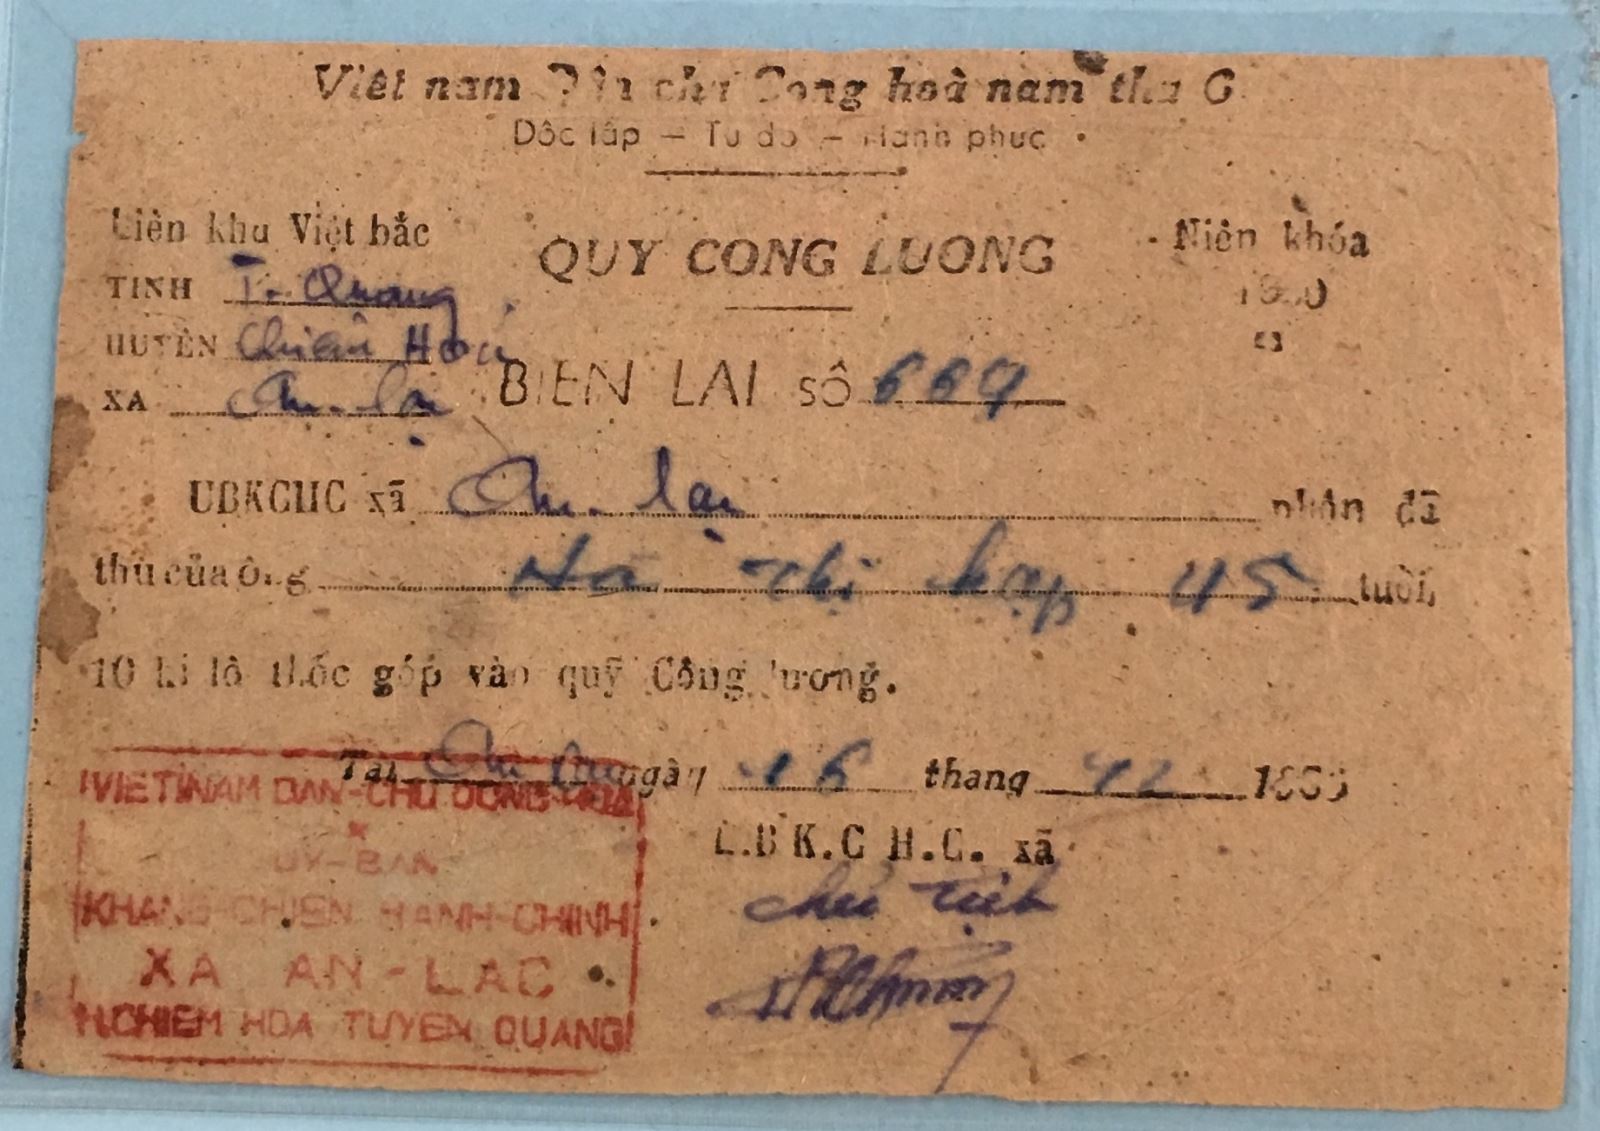 Việt nam Dân chủ Cộng hoà nam thu 6
Dôc lâp — Tu do — Hanh phuc
Liên khu Việt bắc
QUY CONG LUONG
Niên khóa
1950
TINH T. Quang
HUYÊN Chiêm Hoá
XA An-lạc
BIEN LAI sô 669
UBKCHC xã An-lạc nhận đã
thu của ông Hà thị hạp 45 tuổi,
10 ki lô thốc góp vào quỹ Công lương.
Tai An lạc ngày 16 thang 12 195
U.B K.C H.C. xã
chủ tịch
VIETNAM DAN-CHU CONG-HOA
UY-BAN
KHANG-CHIEN HANH-CHINH
XA AN-LAC
H.CHIEM HOA TUYEN QUANG